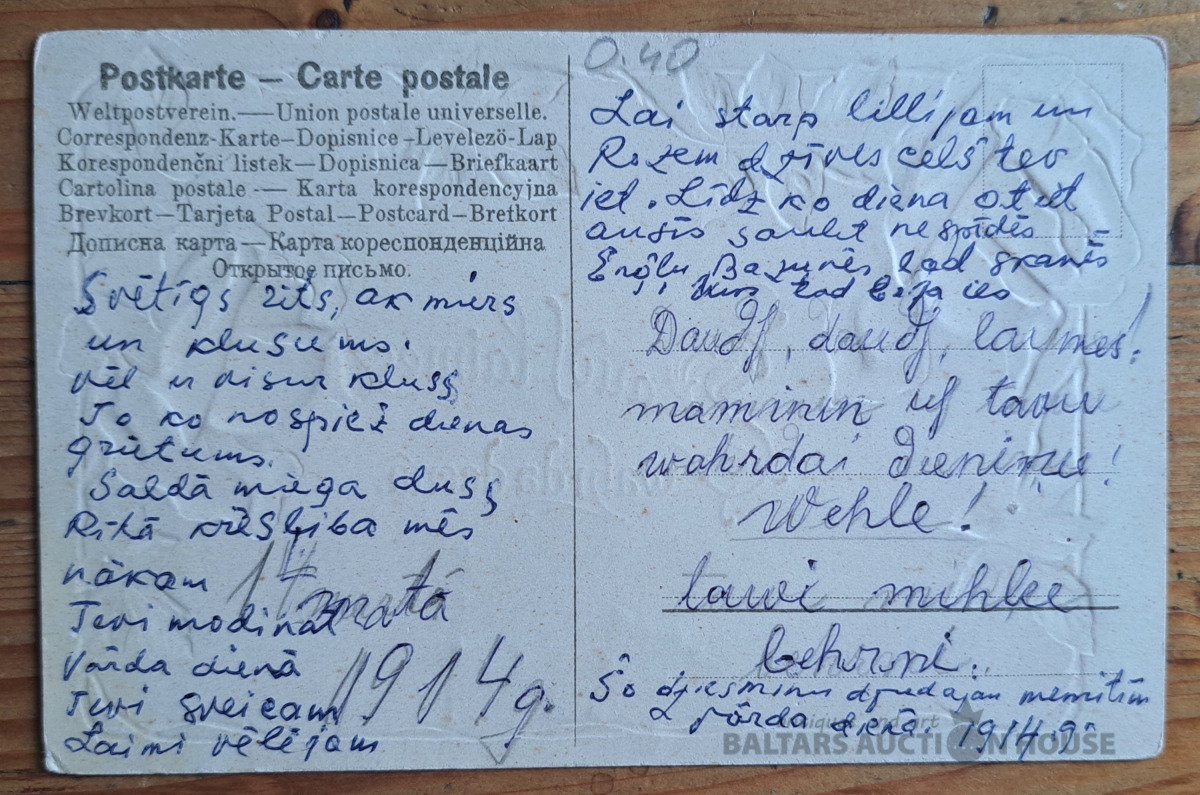 Postkarte – Carte postale
Weltpostverein. — Union postale universelle.
Correspondenz-Karte – Dopisnice – Levelező-Lap
Korespondenčni listek — Dopisnica — Briefkaart
Cartolina postale — Karta korespondencyjna
Brevkort – Tarjeta Postal – Postcard – Brefkort
Дописна карта — Карта кореспонденційна
Открытое письмо.
Svētīgs rits, ak miers
un klusums.
vēl ir visur kluss
To ko nospiež dienas
grūtums.
Saldā miega duss
Rīta krēslība mēs
nākam
Tevi modināt
Vārda dienā
Tevi sveicam
Laimi vēlējam
17 martā
1914 g.
0.40
Lai starp lillijam un
Rozem dzīves ceļš tev
iet. Līdz ko diena
ausīs saule nespīdēs
Eņģļu Bazunēs tad skanēs
Daudſ, daudſ, laimes!
maminin uſ tavu
wahrdai dieninu!
Wehle!
tawi mihlee
behrni.
Šo dziesminu dziedajam memitim
vārda dienā. 1914.g.
antique and art
BALTARS AUCTION HOUSE